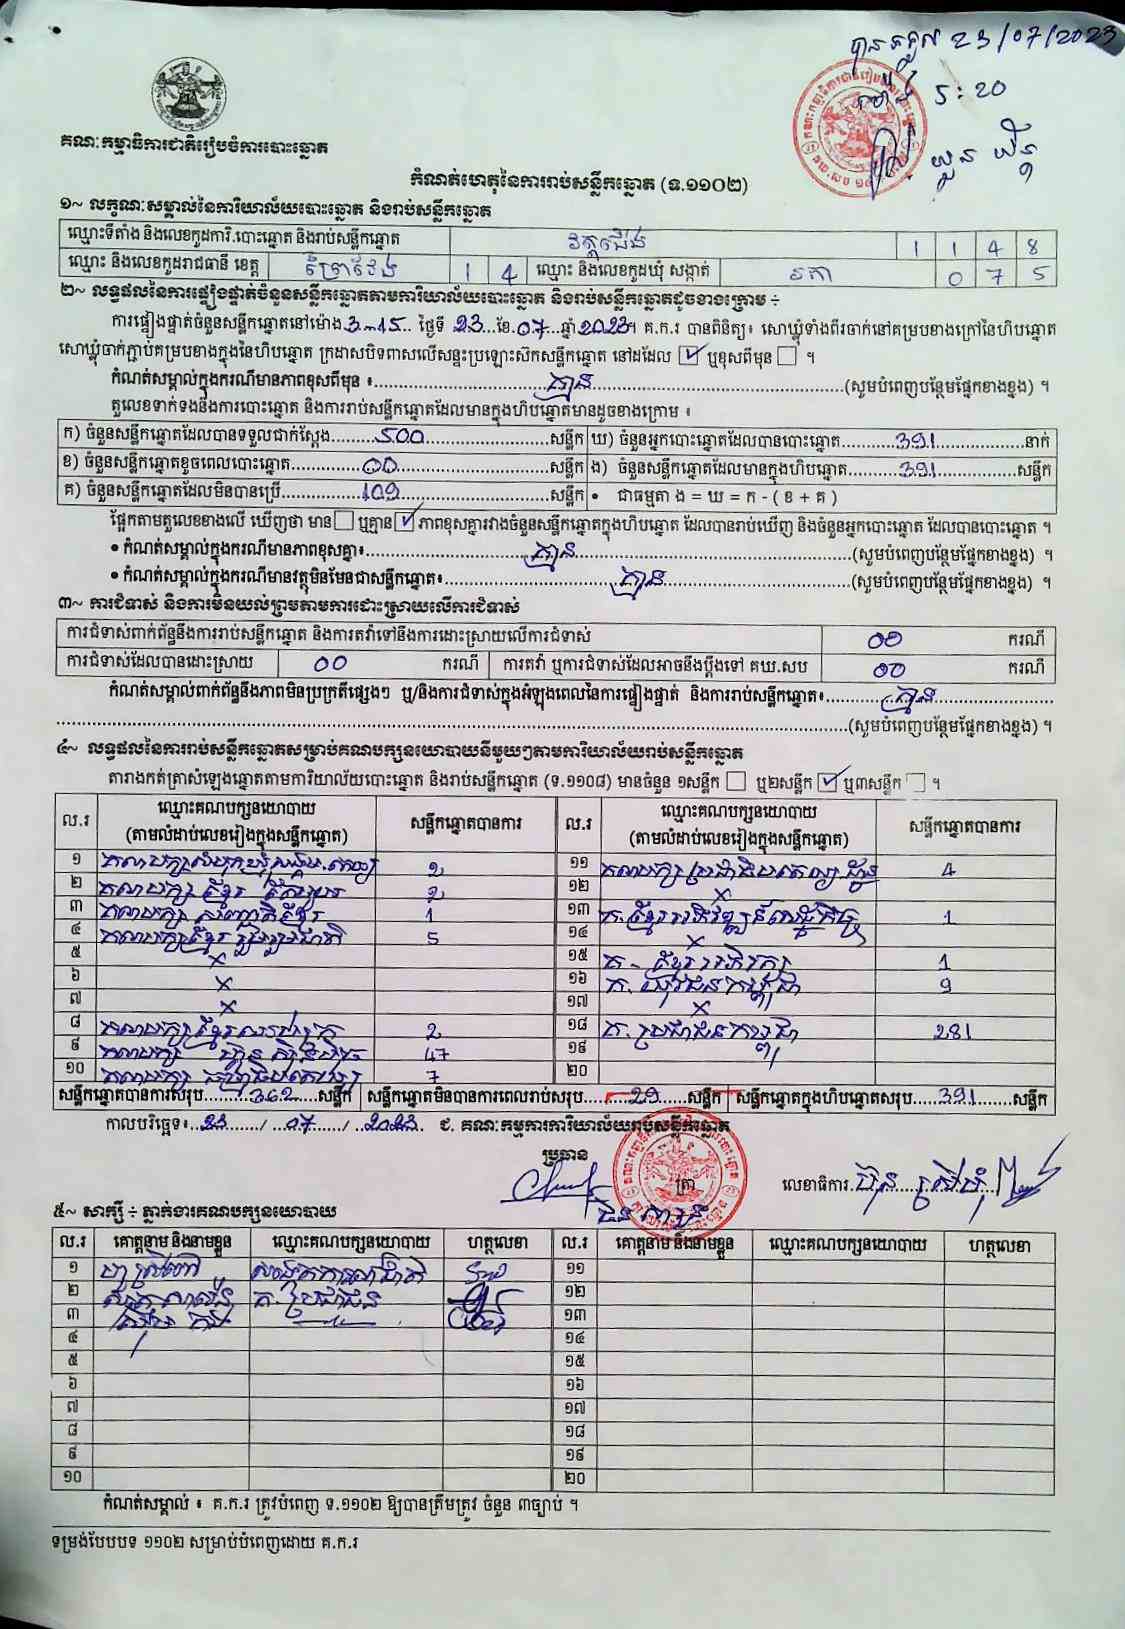 បានទទួល 23/07/2023
ម៉ោង 5:20
គណៈកម្មាធិការជាតិរៀបចំការបោះឆ្នោត
កំណត់ហេតុនៃការរាប់សន្លឹកឆ្នោត (ទ.១១០២)
១~ លក្ខណៈសម្គាល់នៃការិយាល័យបោះឆ្នោត និងរាប់សន្លឹកឆ្នោត
ឈ្មោះទីតាំង និងលេខកូដការិ.បោះឆ្នោត និងរាប់សន្លឹកឆ្នោត 1 1 4 8
ឈ្មោះ និងលេខកូដរាជធានី ខេត្ត ព្រៃវែង 1 4 ឈ្មោះ និងលេខកូដឃុំ សង្កាត់ រកា 0 7 5
២~ លទ្ធផលនៃការផ្ទៀងផ្ទាត់ចំនួនសន្លឹកឆ្នោតតាមការិយាល័យបោះឆ្នោត និងរាប់សន្លឹកឆ្នោតដូចខាងក្រោម ÷
ការផ្ទៀងផ្ទាត់ចំនួនសន្លឹកឆ្នោតនៅម៉ោង 3-15 ថ្ងៃទី 23 ខែ 07 ឆ្នាំ 2023។ គ.ក.រ បានពិនិត្យ៖ សោឃ្លុំទាំងពីរចាក់នៅគម្របខាងក្រៅនៃហិបឆ្នោត
សោឃ្លុំចាក់ភ្ជាប់គម្របខាងក្នុងនៃហិបឆ្នោត ក្រដាសបិទពាសលើសន្ទះប្រឡោះស៊កសន្លឹកឆ្នោត នៅដដែល ☑ ឬខុសពីមុន ☐ ។
កំណត់សម្គាល់ក្នុងករណីមានភាពខុសពីមុន ៖ គ្មាន (សូមបំពេញបន្ថែមផ្នែកខាងខ្នង) ។
តួលេខទាក់ទងនឹងការបោះឆ្នោត និងការរាប់សន្លឹកឆ្នោតដែលមានក្នុងហិបឆ្នោតមានដូចខាងក្រោម ៖
ក) ចំនួនសន្លឹកឆ្នោតដែលបានទទួលជាក់ស្ដែង 500 សន្លឹក ឃ) ចំនួនអ្នកបោះឆ្នោតដែលបានបោះឆ្នោត 391 នាក់
ខ) ចំនួនសន្លឹកឆ្នោតខូចពេលបោះឆ្នោត 00 សន្លឹក ង) ចំនួនសន្លឹកឆ្នោតដែលមានក្នុងហិបឆ្នោត 391 សន្លឹក
គ) ចំនួនសន្លឹកឆ្នោតដែលមិនបានប្រើ 109 សន្លឹក • ជាធម្មតា ង = ឃ = ក - ( ខ + គ )
ផ្អែកតាមតួលេខខាងលើ ឃើញថា មាន ☐ ឬគ្មាន ☑ ភាពខុសគ្នារវាងចំនួនសន្លឹកឆ្នោតក្នុងហិបឆ្នោត ដែលបានរាប់ឃើញ និងចំនួនអ្នកបោះឆ្នោត ដែលបានបោះឆ្នោត ។
• កំណត់សម្គាល់ក្នុងករណីមានភាពខុសគ្នា៖ គ្មាន (សូមបំពេញបន្ថែមផ្នែកខាងខ្នង) ។
• កំណត់សម្គាល់ក្នុងករណីមានវត្ថុមិនមែនជាសន្លឹកឆ្នោត៖ គ្មាន (សូមបំពេញបន្ថែមផ្នែកខាងខ្នង) ។
៣~ ការជំទាស់ និងការមិនយល់ព្រមតាមការដោះស្រាយលើការជំទាស់
ការជំទាស់ពាក់ព័ន្ធនឹងការរាប់សន្លឹកឆ្នោត និងការតវ៉ាទៅនឹងការដោះស្រាយលើការជំទាស់ 00 ករណី
ការជំទាស់ដែលបានដោះស្រាយ 00 ករណី ការតវ៉ា ឬការជំទាស់ដែលអាចនឹងប្ដឹងទៅ គឃ.សប 00 ករណី
កំណត់សម្គាល់ពាក់ព័ន្ធនឹងភាពមិនប្រក្រតីផ្សេងៗ ឬ/និងការជំទាស់ក្នុងអំឡុងពេលនៃការផ្ទៀងផ្ទាត់ និងការរាប់សន្លឹកឆ្នោត៖ គ្មាន
(សូមបំពេញបន្ថែមផ្នែកខាងខ្នង) ។
៤~ លទ្ធផលនៃការរាប់សន្លឹកឆ្នោតសម្រាប់គណបក្សនយោបាយនីមួយៗតាមការិយាល័យរាប់សន្លឹកឆ្នោត
តារាងកត់ត្រាសំឡេងឆ្នោតតាមការិយាល័យបោះឆ្នោត និងរាប់សន្លឹកឆ្នោត (ទ.១១០៨) មានចំនួន ១សន្លឹក ☐ ឬ២សន្លឹក ☑ ឬ៣សន្លឹក ☐ ។
ល.រ ឈ្មោះគណបក្សនយោបាយ (តាមលំដាប់លេខរៀងក្នុងសន្លឹកឆ្នោត) សន្លឹកឆ្នោតបានការ ល.រ ឈ្មោះគណបក្សនយោបាយ (តាមលំដាប់លេខរៀងក្នុងសន្លឹកឆ្នោត) សន្លឹកឆ្នោតបានការ
១ 2 ១១ 4
២ គណបក្ស ខ្មែរ 2 ១២ x
៣ គណបក្ស សញ្ជាតិខ្មែរ 1 ១៣ គ.ខ្មែរអភិវឌ្ឍន៍សេដ្ឋកិច្ច 1
៤ គណបក្សខ្មែរ រួបរួមជាតិ 5 ១៤ x
៥ x ១៥ គ. ខ្មែរអភិរក្ស 1
៦ x ១៦ គ. យុវជនកម្ពុជា 9
៧ x ១៧ x
៨ គណបក្សខ្មែរឈប់ក្រ 2 ១៨ គ. ប្រជាជនកម្ពុជា 281
៩ គណបក្ស ហ្វ៊ុនស៊ិនប៉ិច 47 ១៩
១០ គណបក្ស 7 ២០
សន្លឹកឆ្នោតបានការសរុប 362 សន្លឹក សន្លឹកឆ្នោតមិនបានការពេលរាប់សរុប 29 សន្លឹក សន្លឹកឆ្នោតក្នុងហិបឆ្នោតសរុប 391 សន្លឹក
កាលបរិច្ឆេទ៖ 23 / 07 / 2023 . ជ. គណៈកម្មការការិយាល័យរាប់សន្លឹកឆ្នោត
ប្រធាន
ត្រា
លេខាធិការ
៥~ សាក្សី ÷ ភ្នាក់ងារគណបក្សនយោបាយ
ល.រ គោត្តនាម និងនាមខ្លួន ឈ្មោះគណបក្សនយោបាយ ហត្ថលេខា ល.រ គោត្តនាម និងនាមខ្លួន ឈ្មោះគណបក្សនយោបាយ ហត្ថលេខា
១ ១១
២ គ. ប្រជាជន ១២
៣ ១៣
៤ ១៤
៥ ១៥
៦ ១៦
៧ ១៧
៨ ១៨
៩ ១៩
១០ ២០
កំណត់សម្គាល់ ៖ គ.ក.រ ត្រូវបំពេញ ទ.១១០២ ឱ្យបានត្រឹមត្រូវ ចំនួន ៣ច្បាប់ ។
ទម្រង់បែបបទ ១១០២ សម្រាប់បំពេញដោយ គ.ក.រ